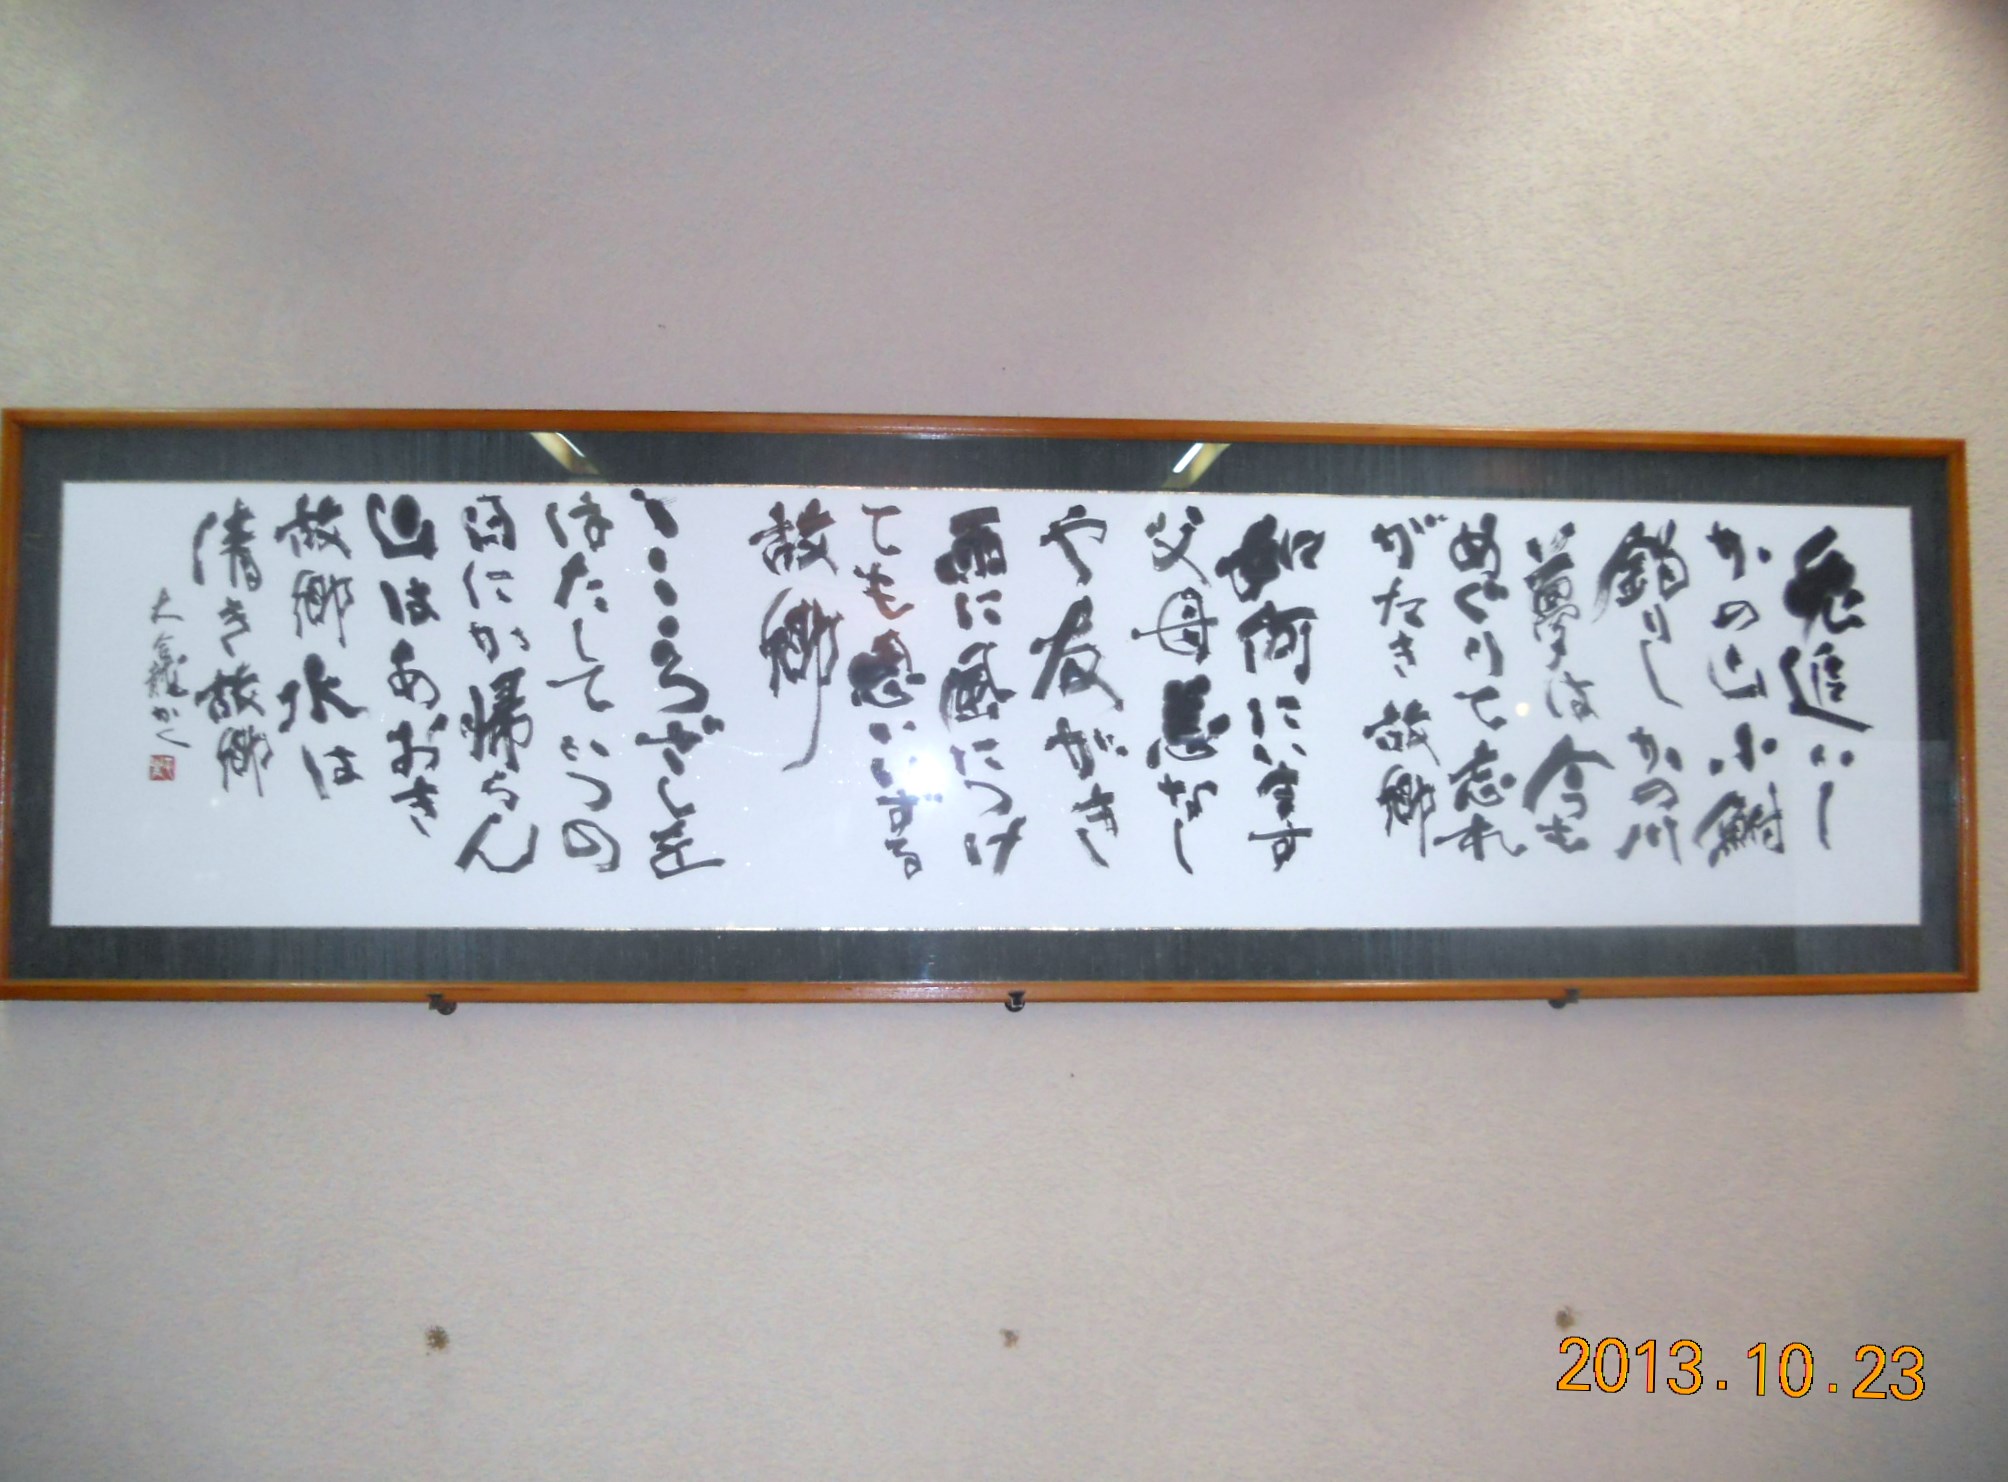 兎追いし
かの山小鮒
釣りしかの川
夢は今も
めぐりて忘れ
がたき故郷
如何にいます
父母恙なし
や友がき
雨に風につけ
ても思いいずる
故郷
こころざしを
はたしていつの
日にか帰らん
山はあおき
故郷水は
清き故郷
かく
2013.10.23